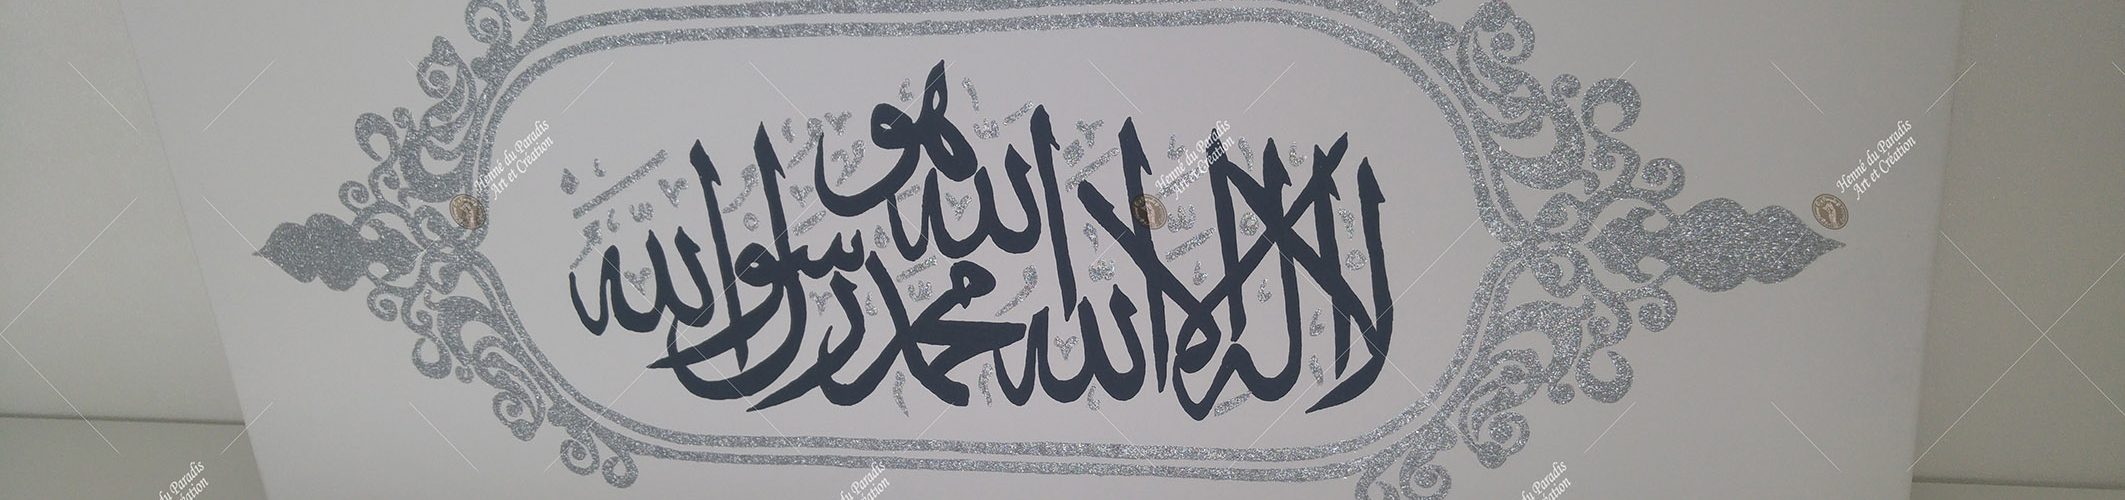 هو
الله
لا اله الا الله محمد رسول الله
Henné du Paradis
Art et Création
Henné du Paradis
Art et Création
Henné du Paradis
Art et Création
du Paradis
éation
du Paradis
éation
du Paradis
éation